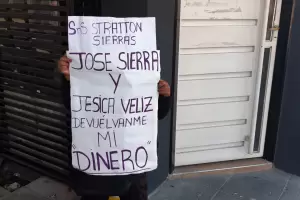 S&S STRATTON
SIERRAS
JOSE SIERRA
Y
JESICA VELIZ
DEVUÉLVANME
MI
"DINERO"